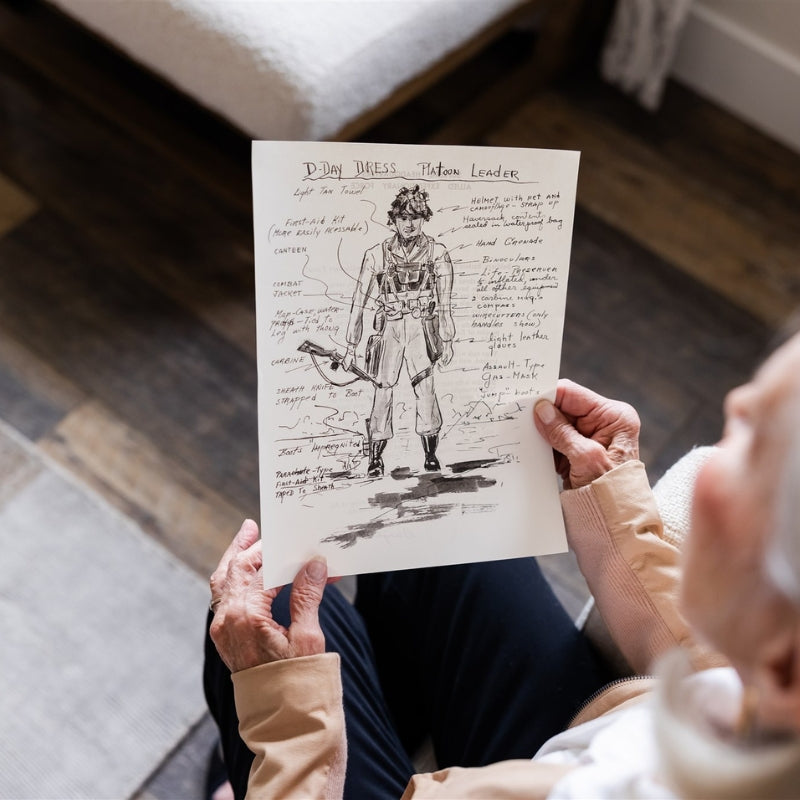 D-DAY DRESS PLATOON LEADER
Light Tan Towel
First-Aid Kit
(More Easily Acessable)
CANTEEN
COMBAT
JACKET
Map-Case, water-
Tied to
Leg with thong
CARBINE
SHEATH KNIFE
STRAPPED TO Boot
Boots "Impregnited
Parachute-Type
First-Aid Kit
TAPED TO Sheath
HELMET with net and
camouflage - STRAP UP
Haversack, content
sealed in waterproof bag
HAND GRENADE
BINOCULARS
Life-PRESERVER
inflated, under
all other equipment
2 carbine mag's
compass
WIRECUTTERS (only
handles show)
light leather
gloves
ASSAULT-Type
Gas-Mask
"Jump" boots